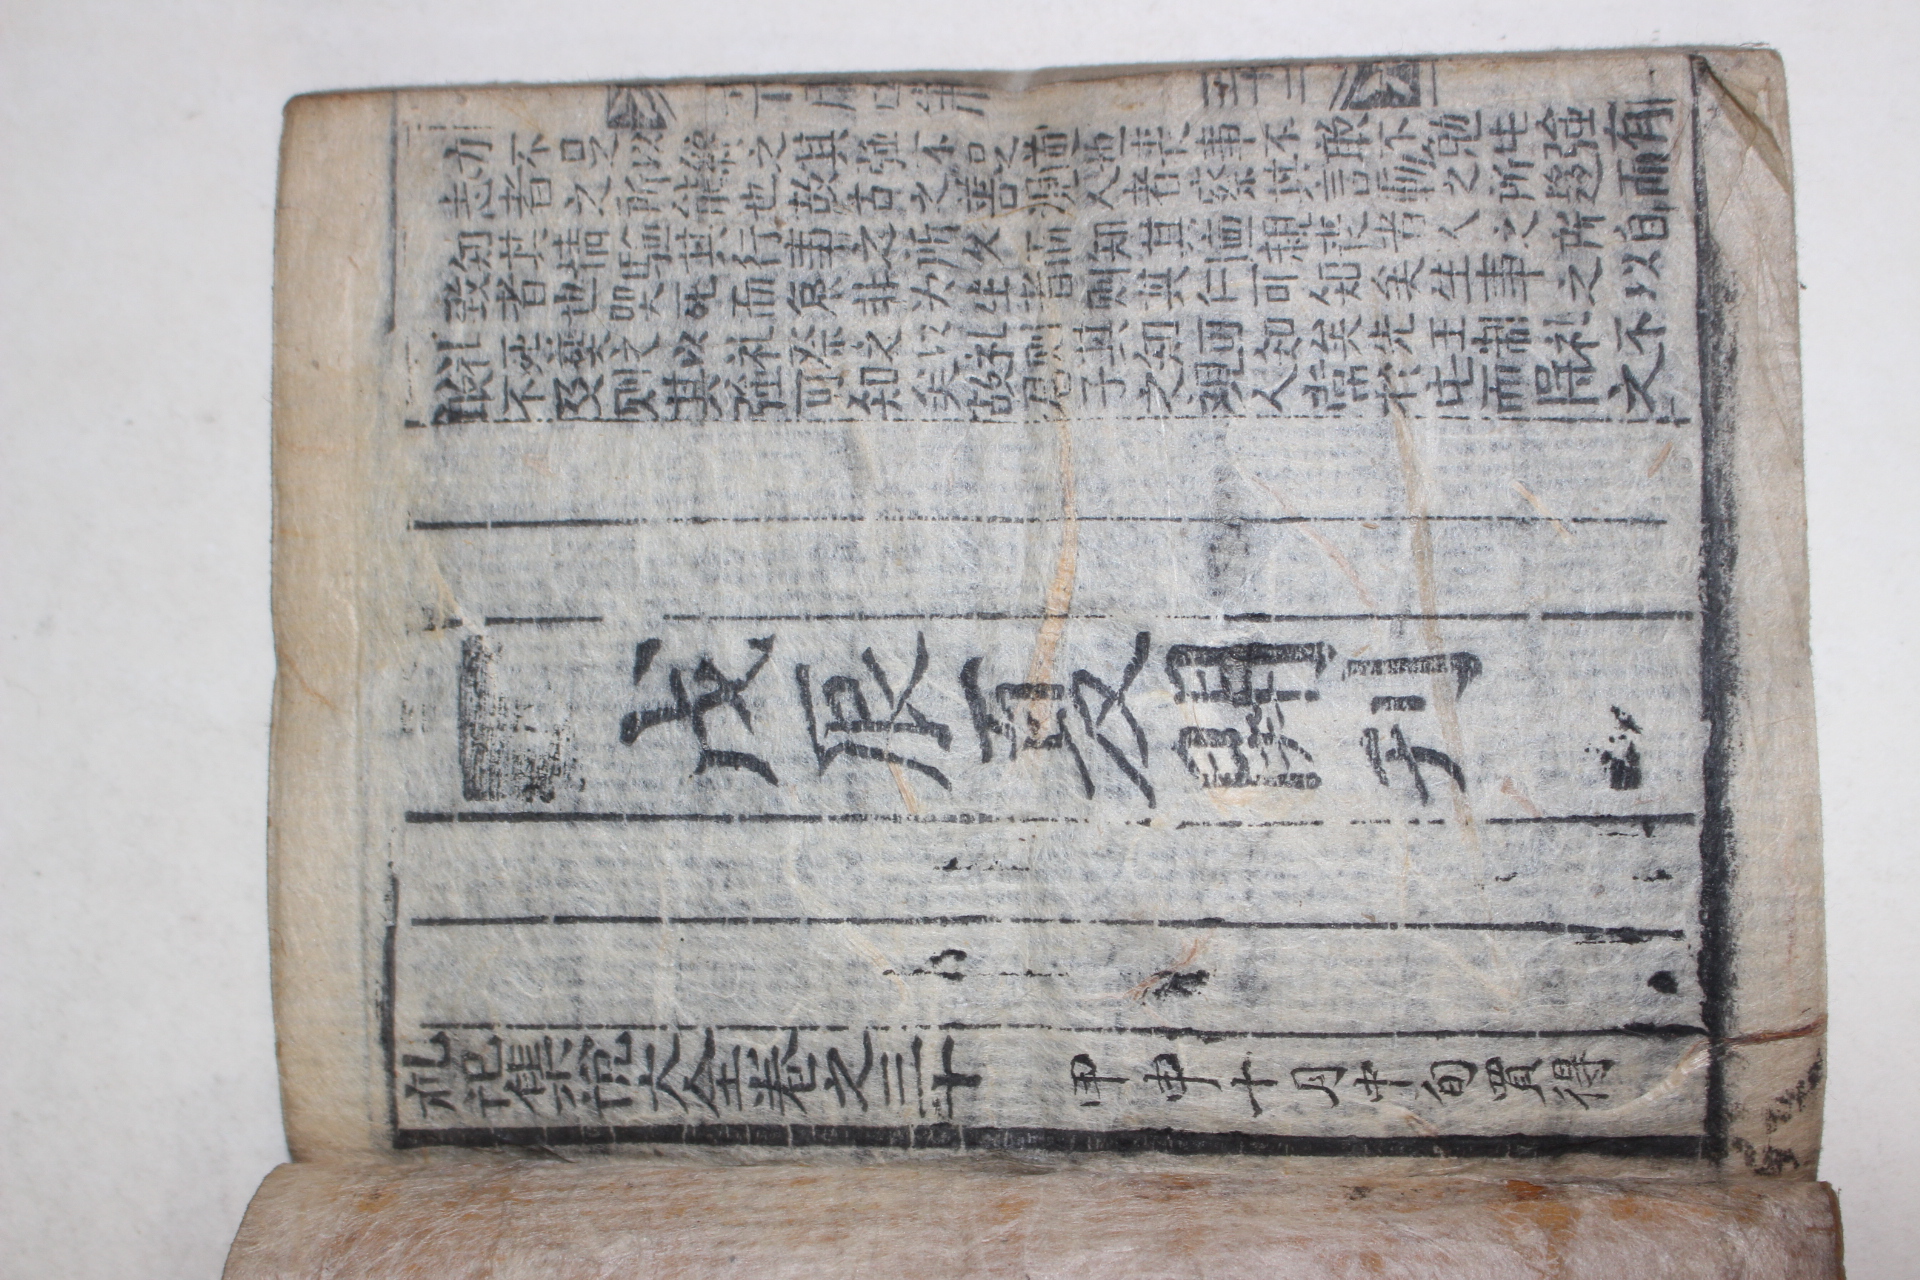 力不足以終之其強不足道也喪事不敢不勉也強有
志者之所能也故古之善观人者察其言而之所趍而
知其情驗其行事之所久而知其德親喪者人之所自
致者也哭死而哀非为生者則其仁可知矣生事之以
礼死葬之以礼祭之以礼則其知可知矣先王制礼不
敢不及则其強可知矣故君子之观人常於此而得之
戊辰夏開刊
礼記集說大全卷之三十 甲申十月中旬買得